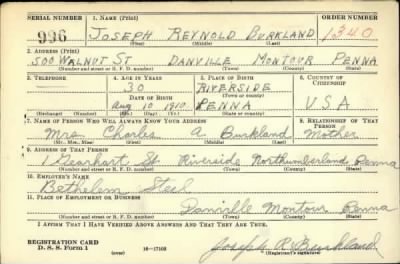 SERIAL NUMBER 1. NAME (Print) ORDER NUMBER
996 JOSEPH REYNOLD BURKLAND 1340
(First) (Middle) (Last)
2. ADDRESS (Print)
500 WALNUT ST. DANVILLE MONTOUR PENNA
(Number and street or R. F. D. number) (Town) (County) (State)
3. TELEPHONE 4. AGE IN YEARS 5. PLACE OF BIRTH 6. COUNTRY OF CITIZENSHIP
30 RIVERSIDE
DATE OF BIRTH (Town or county)
Aug 10 1910 PENNA USA
(Exchange) (Number) (Mo.) (Day) (Yr.) (State or country)
7. NAME OF PERSON WHO WILL ALWAYS KNOW YOUR ADDRESS 8. RELATIONSHIP OF THAT PERSON
Mrs. Charles A Burkland Mother
(Mr., Mrs., Miss) (First) (Middle) (Last)
9. ADDRESS OF THAT PERSON
1 Gearhart St. Riverside Northumberland Penna
(Number and street or R. F. D. number) (Town) (County) (State)
10. EMPLOYER'S NAME
Bethelem Steel
11. PLACE OF EMPLOYMENT OR BUSINESS
Danville Montour Penna
(Number and street or R. F. D. number) (Town) (County) (State)
I AFFIRM THAT I HAVE VERIFIED ABOVE ANSWERS AND THAT THEY ARE TRUE.
REGISTRATION CARD
D. S. S. Form 1 (over) 16—17105 Joseph R. Burkland
(Registrant's signature)